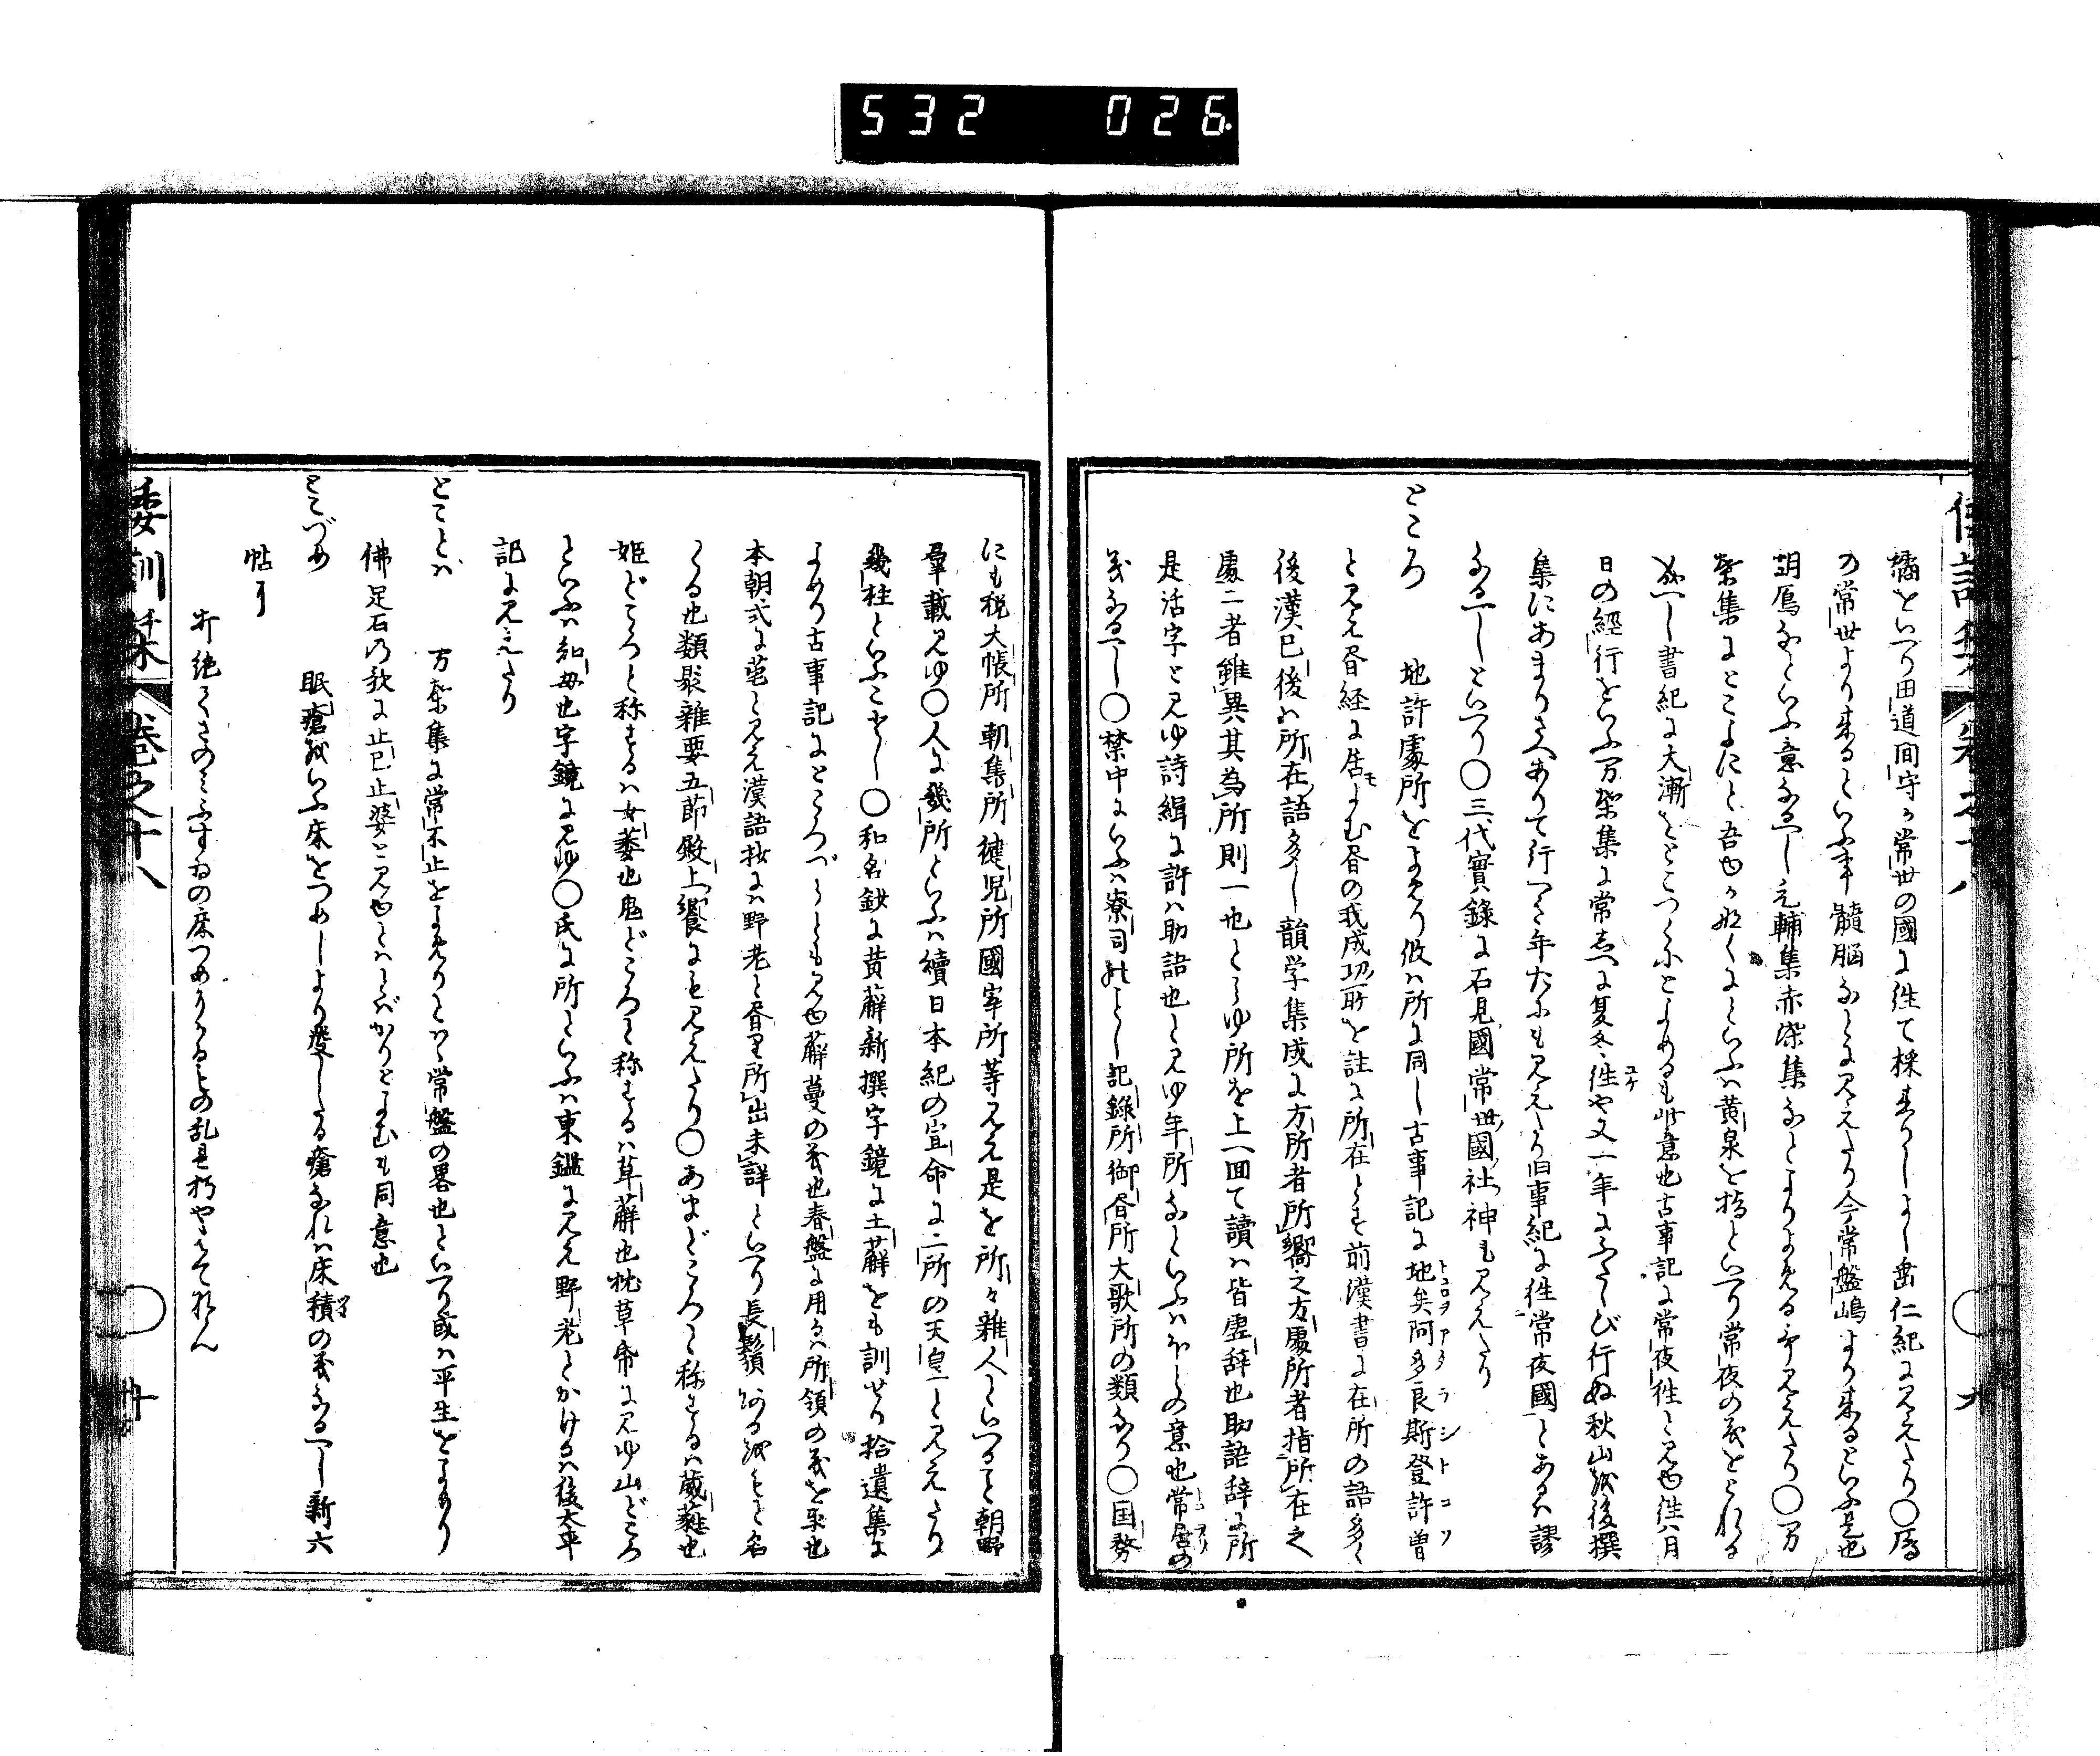 532 026
橘といへり田道間守か常世の國に徃て採来りしよし垂仁紀に見えたり○鴈
の常世より来るといふ事髄脳なとに見えたり今常盤嶋より来るといふ是也
胡鴈なといふ意なるへし元輔集赤染集なとによめる事見えたり○万
葉集にとこよにと吾ゆかなくにといふハ黄泉を指といへり常夜の義をとれる
なるへし書紀に大漸をとこつくにとよめるも此意也古事記に常夜徃と見ゆ徃ハ月
日の經行をいふ万葉集に常しへに夏冬徃や又一年にふたゝび行ぬ秋山を後撰
集にあまりさへありて行へき年たにも見えたり旧事紀に徃常夜國とあるハ謬
なるへしといへり○三代實録に石見國常世國社神も見えたり
ところ 地許處所をよめり攸ハ所に同し古事記に地矣阿多良斯登許曽
と見え書経に居もよむ書の我成功所を註に所在とす前漢書に在所の語多く
後漢已後ハ所在語多し韻学集成に方所者所嚮之方處所者指所在之
處二者雖異其為所則一也と見ゆ所を上へ回て讀ハ皆虚辞也助語辞に所
是活字と見ゆ詩緝に許ハ助語也と見ゆ年所なといふハほとの意也常居の
義なるへし○禁中にいふハ寮司のことし記録所御書所大歌所の類なり○国務
にも税大帳所朝集所健児所國宰所等見え是を所々雑人といへること朝野
羣載見ゆ○人に幾所といふハ續日本紀の宣命に二所の天皇と見えたり
幾柱といふことし○和名鈔に黄薢新撰字鏡に土薢をも訓せり拾遺集に
よめり古事記にところづらとも見ゆ薢蔓の義也春盤に用るハ所領の義を取也
本朝式に䓘と見え漢語抄にハ野老と書里所出未詳といへり長鬚ある故もて名
くる也類聚雑要五節殿上饗にも見えたり○あまどころと称するハ葳蕤也
姫どころと称するハ女萎也鬼どころと称するハ草薢也枕草帋に見ゆ山どころ
といふハ知母也字鏡に見ゆ○氏に所といふハ東鑑に見え野老とかけるハ後太平
記に見えたり
とことハ 万葉集に常不止をよめりとハ常盤の畧也といへり或ハ平生をよめり
佛足石の歌に止已止婆と見ゆとハとばかりとよむも同意也
とこづめ 眠瘡をいふ床をつめしより發したる瘡なれハ床積の義なるへし新六
帖に
弁絶てくさのミふすゐの床つめりかるもの乱是朽やはてなん
倭訓栞 巻之十八